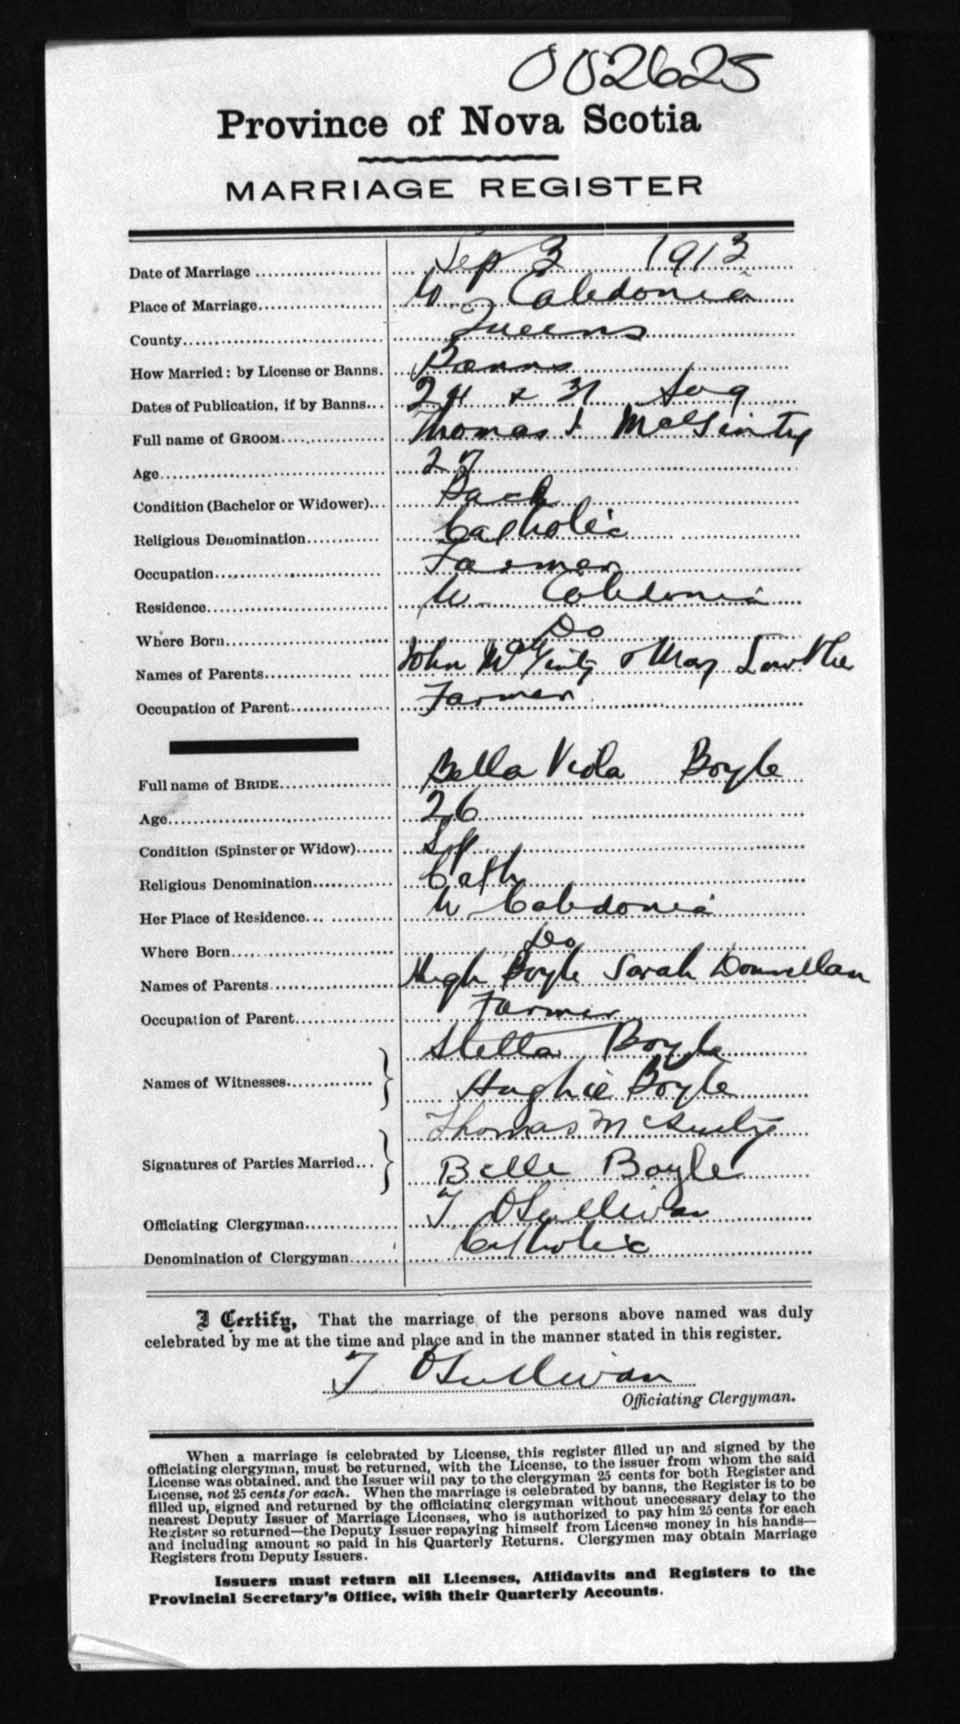 002625
Province of Nova Scotia
MARRIAGE REGISTER
Date of Marriage Sep 3 1913
Place of Marriage W Caledonia
County Queens
How Married: by License or Banns. Banns
Dates of Publication, if by Banns 24 & 31 Aug
Full name of GROOM Thomas J. McGinty
Age 27
Condition (Bachelor or Widower) Bach
Religious Denomination Catholic
Occupation Farmer
Residence W Caledonia
Where Born Do
Names of Parents John McGinty & May Lowther
Occupation of Parent Farmer
Full name of BRIDE Bella Viola Boyle
Age 26
Condition (Spinster or Widow) Sp
Religious Denomination Cath
Her Place of Residence W Caledonia
Where Born Do
Names of Parents Hugh Boyle Sarah Donnellan
Occupation of Parent Farmer
Names of Witnesses Stella Boyle
Hughie Boyle
Signatures of Parties Married Thomas McGinty
Belle Boyle
Officiating Clergyman T OSullivan
Denomination of Clergyman Catholic
I Certify, That the marriage of the persons above named was duly
celebrated by me at the time and place and in the manner stated in this register.
T OSullivan
Officiating Clergyman.
When a marriage is celebrated by License, this register filled up and signed by the
officiating clergyman, must be returned, with the License, to the issuer from whom the said
License was obtained, and the Issuer will pay to the clergyman 25 cents for both Register and
License, not 25 cents for each. When the marriage is celebrated by banns, the Register is to be
filled up, signed and returned by the officiating clergyman without unnecessary delay to the
nearest Deputy Issuer of Marriage Licenses, who is authorized to pay him 25 cents for each
Register so returned—the Deputy Issuer repaying himself from License money in his hands—
and including amount so paid in his Quarterly Returns. Clergymen may obtain Marriage
Registers from Deputy Issuers.
Issuers must return all Licenses, Affidavits and Registers to the
Provincial Secretary's Office, with their Quarterly Accounts.